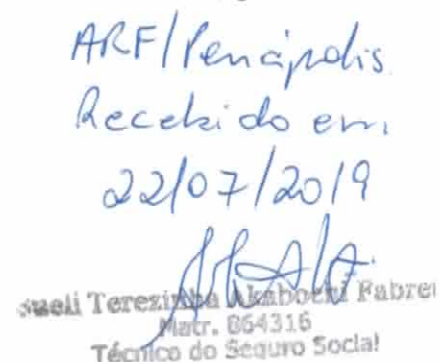 ARF/Penápolis
Recebido em
22/07/2019
sueli Terezinha Fabre
Matr. 864316
Técnico do Seguro Social